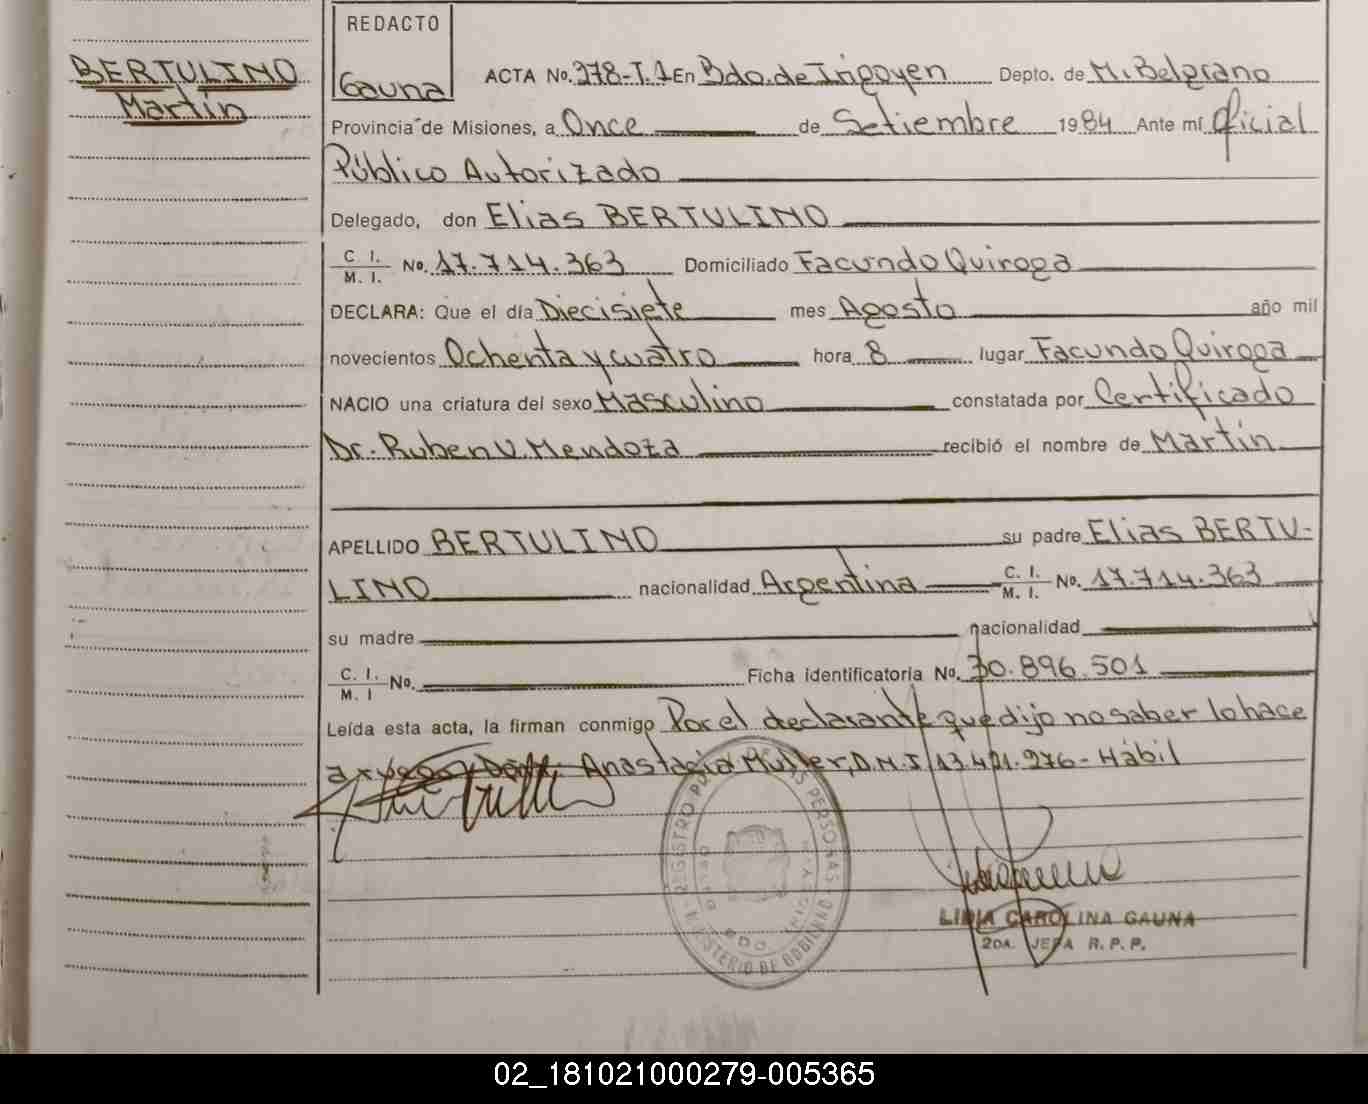 BERTULINO
Martín
REDACTO
Gauna
ACTA No. 278-T.1 En Bdo. de Irigoyen Depto. de M. Belgrano
Provincia de Misiones, a Once de Setiembre 1984 Ante mí Oficial
Público Autorizado
Delegado, don Elias BERTULINO
C. I. M. I. No. 17.714.363 Domiciliado Facundo Quiroga
DECLARA: Que el día Diecisiete mes Agosto año mil
novecientos Ochenta y cuatro hora 8 lugar Facundo Quiroga
NACIO una criatura del sexo Masculino constatada por Certificado
Dr. Ruben V. Mendoza recibió el nombre de Martín
APELLIDO BERTULINO su padre Elias BERTU-
LINO nacionalidad Argentina C. I. M. I. No. 17.714.363
su madre nacionalidad
C. I. M. I No. Ficha identificatoria No. 30.896.501
Leída esta acta, la firman conmigo Por el declarante que dijo no saber lo hace
a ruego Doña: Anastacia Muller, D.N.I 13.421.276- Hábil
REGISTRO DE LAS PERSONAS
MINISTERIO DE GOBIERNO
BDO.
LIDIA CAROLINA GAUNA
2DA. JEFA R. P. P.
02_181021000279-005365